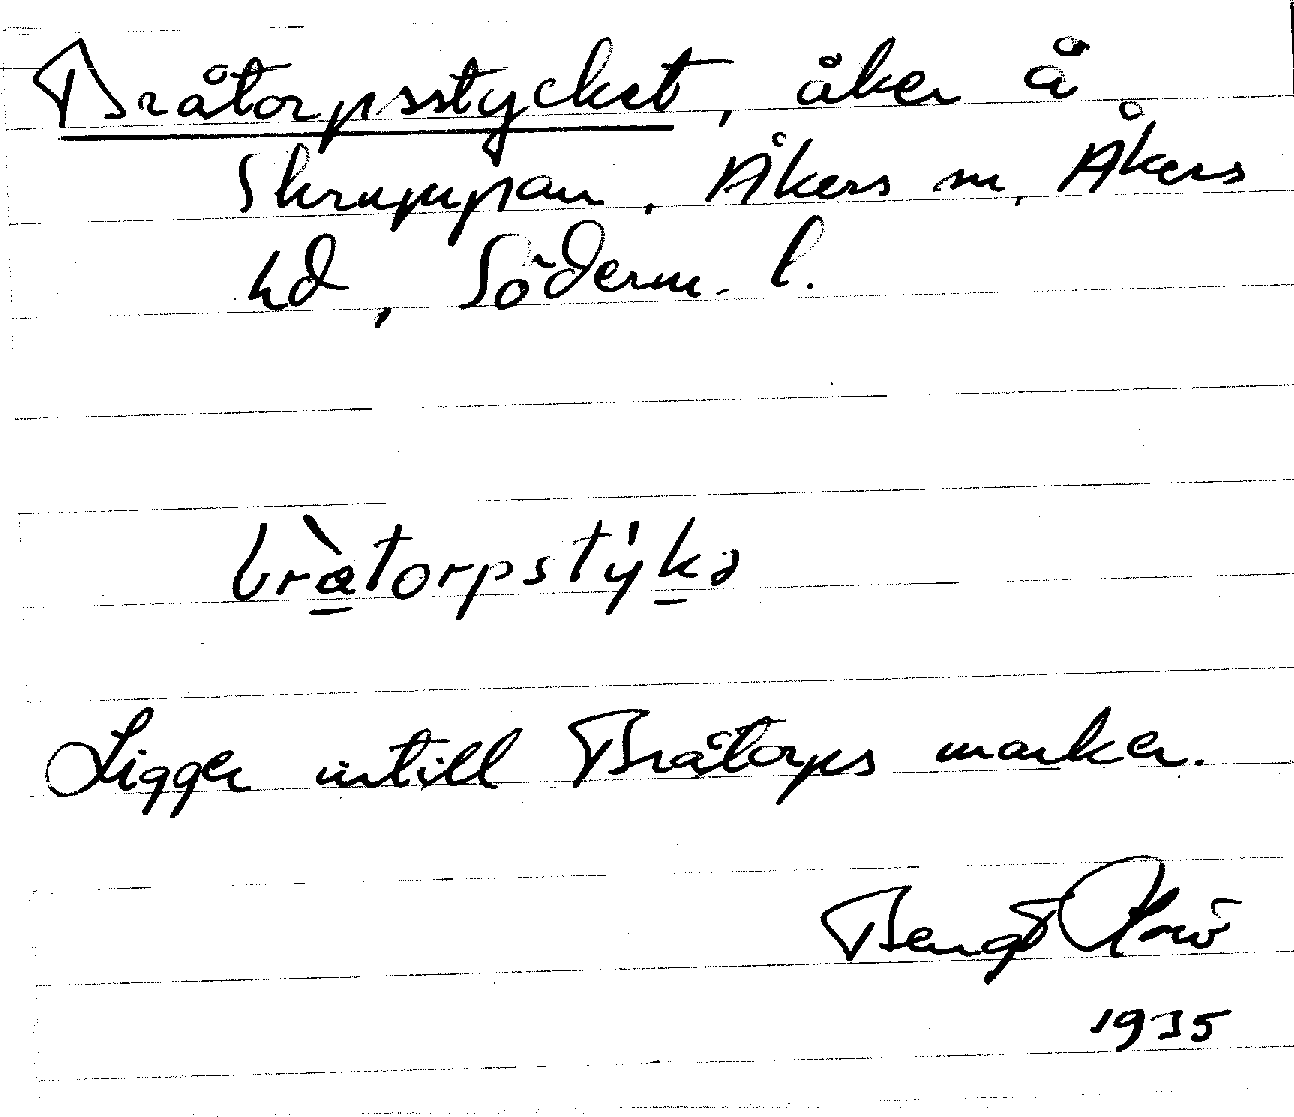 Bråtorpsstycket, åker å
Skruppan, Åkers sn, Åkers
hd, Söderm. l.
bràtorpstýkə
Ligger intill Bråtorps marker.
Bengt
1935